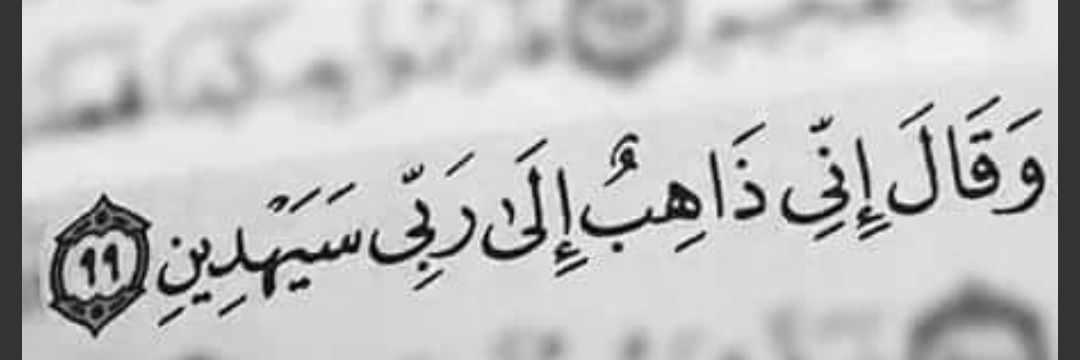 وَقَالَ إِنِّى ذَاهِبٌ إِلَىٰ رَبِّى سَيَهْدِينِ ٩٩